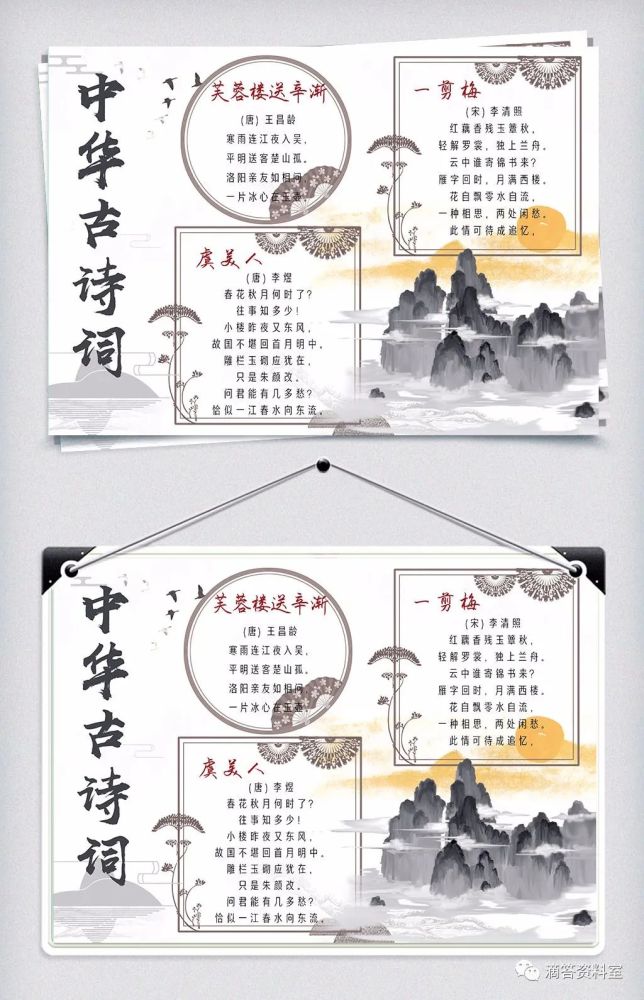 中华古诗词
芙蓉楼送辛渐
(唐) 王昌龄
寒雨连江夜入吴,
平明送客楚山孤。
洛阳亲友如相问,
一片冰心在玉壶。
一剪梅
(宋) 李清照
红藕香残玉簟秋,
轻解罗裳, 独上兰舟。
云中谁寄锦书来?
雁字回时, 月满西楼。
花自飘零水自流,
一种相思, 两处闲愁。
此情可待成追忆,
虞美人
(唐) 李煜
春花秋月何时了?
往事知多少!
小楼昨夜又东风,
故国不堪回首月明中。
雕栏玉砌应犹在,
只是朱颜改。
问君能有几多愁?
恰似一江春水向东流。
中华古诗词
芙蓉楼送辛渐
(唐) 王昌龄
寒雨连江夜入吴,
平明送客楚山孤。
洛阳亲友如相问,
一片冰心在玉壶。
一剪梅
(宋) 李清照
红藕香残玉簟秋,
轻解罗裳, 独上兰舟。
云中谁寄锦书来?
雁字回时, 月满西楼。
花自飘零水自流,
一种相思, 两处闲愁。
此情可待成追忆,
虞美人
(唐) 李煜
春花秋月何时了?
往事知多少?
小楼昨夜又东风,
故国不堪回首月明中。
雕栏玉砌应犹在,
只是朱颜改。
问君能有几多愁?
恰似一江春水向东流。
滴答资料室